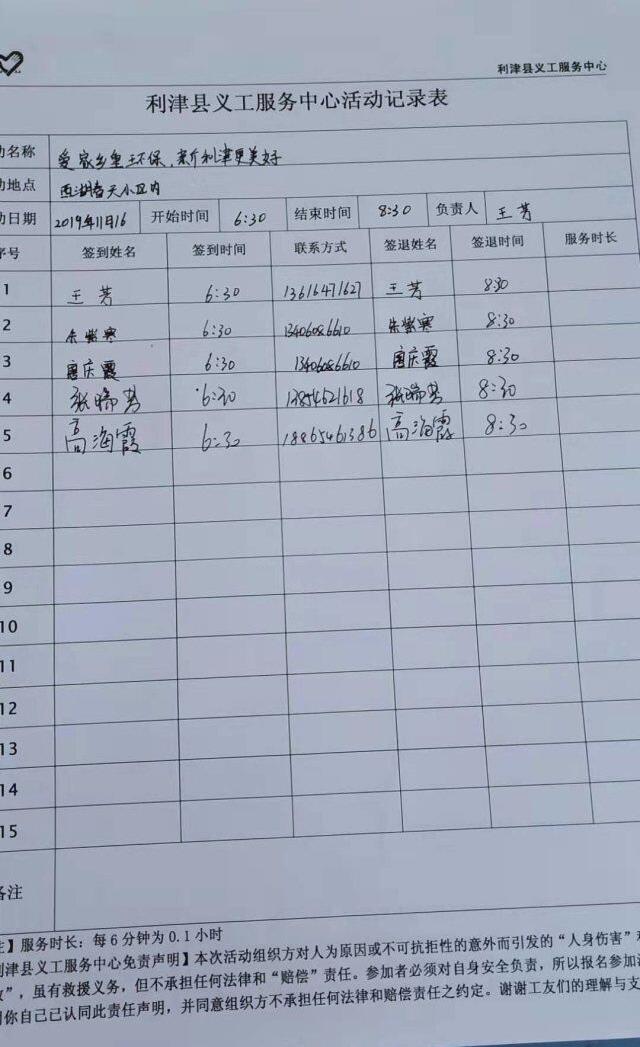 利津县义工服务中心
利津县义工服务中心活动记录表
动名称 爱家乡重环保,新利津更美好
动地点 西湖春天小区内
动日期 2019年11月16 开始时间 6:30 结束时间 8:30 负责人 王芳
序号 签到姓名 签到时间 联系方式 签退姓名 签退时间 服务时长
1 王芳 6:30 13616471627 王芳 8:30
2 6:30 13406086610 8:30
3 唐庆霞 6:30 13406086610 唐庆霞 8:30
4 张瑞芳 6:30 13854621618 张瑞芳 8:30
5 高海霞 6:30 18865461386 高海霞 8:30
6
7
8
9
10
11
12
13
14
15
备注
注】服务时长：每6分钟为0.1小时
利津县义工服务中心免责声明】本次活动组织方对人为原因或不可抗拒性的意外而引发的“人身伤害”和
故”，虽有救援义务，但不承担任何法律和“赔偿”责任。参加者必须对自身安全负责，所以报名参加活
明你自己已认同此责任声明，并同意组织方不承担任何法律和赔偿责任之约定。谢谢工友们的理解与支